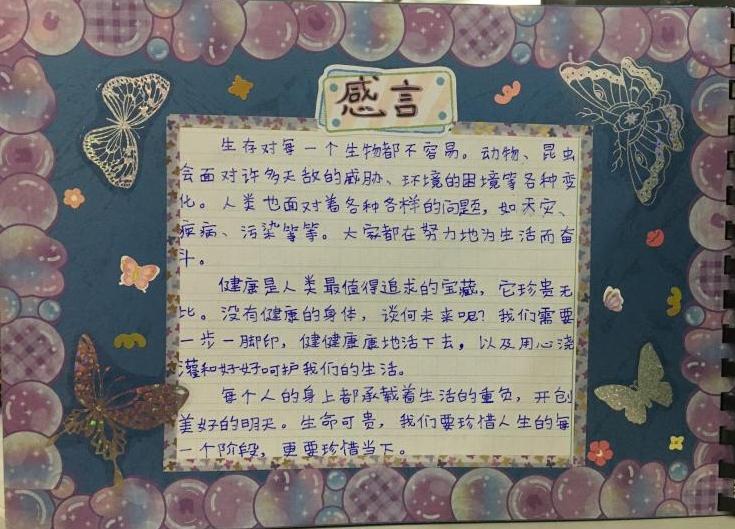 感言
生存对每一个生物都不容易。动物、昆虫
会面对许多天敌的威胁、环境的困境等各种变
化。人类也面对着各种各样的问题，如天灾、
疾病、污染等等。大家都在努力地为生活而奋
斗。
健康是人类最值得追求的宝藏，它珍贵无
比。没有健康的身体，谈何未来呢？我们需要
一步一脚印，健健康康地活下去，以及用心浇
灌和好好呵护我们的生活。
每个人的身上都承载着生活的重负，开创
美好的明天。生命可贵，我们要珍惜人生的每
一个阶段，更要珍惜当下。